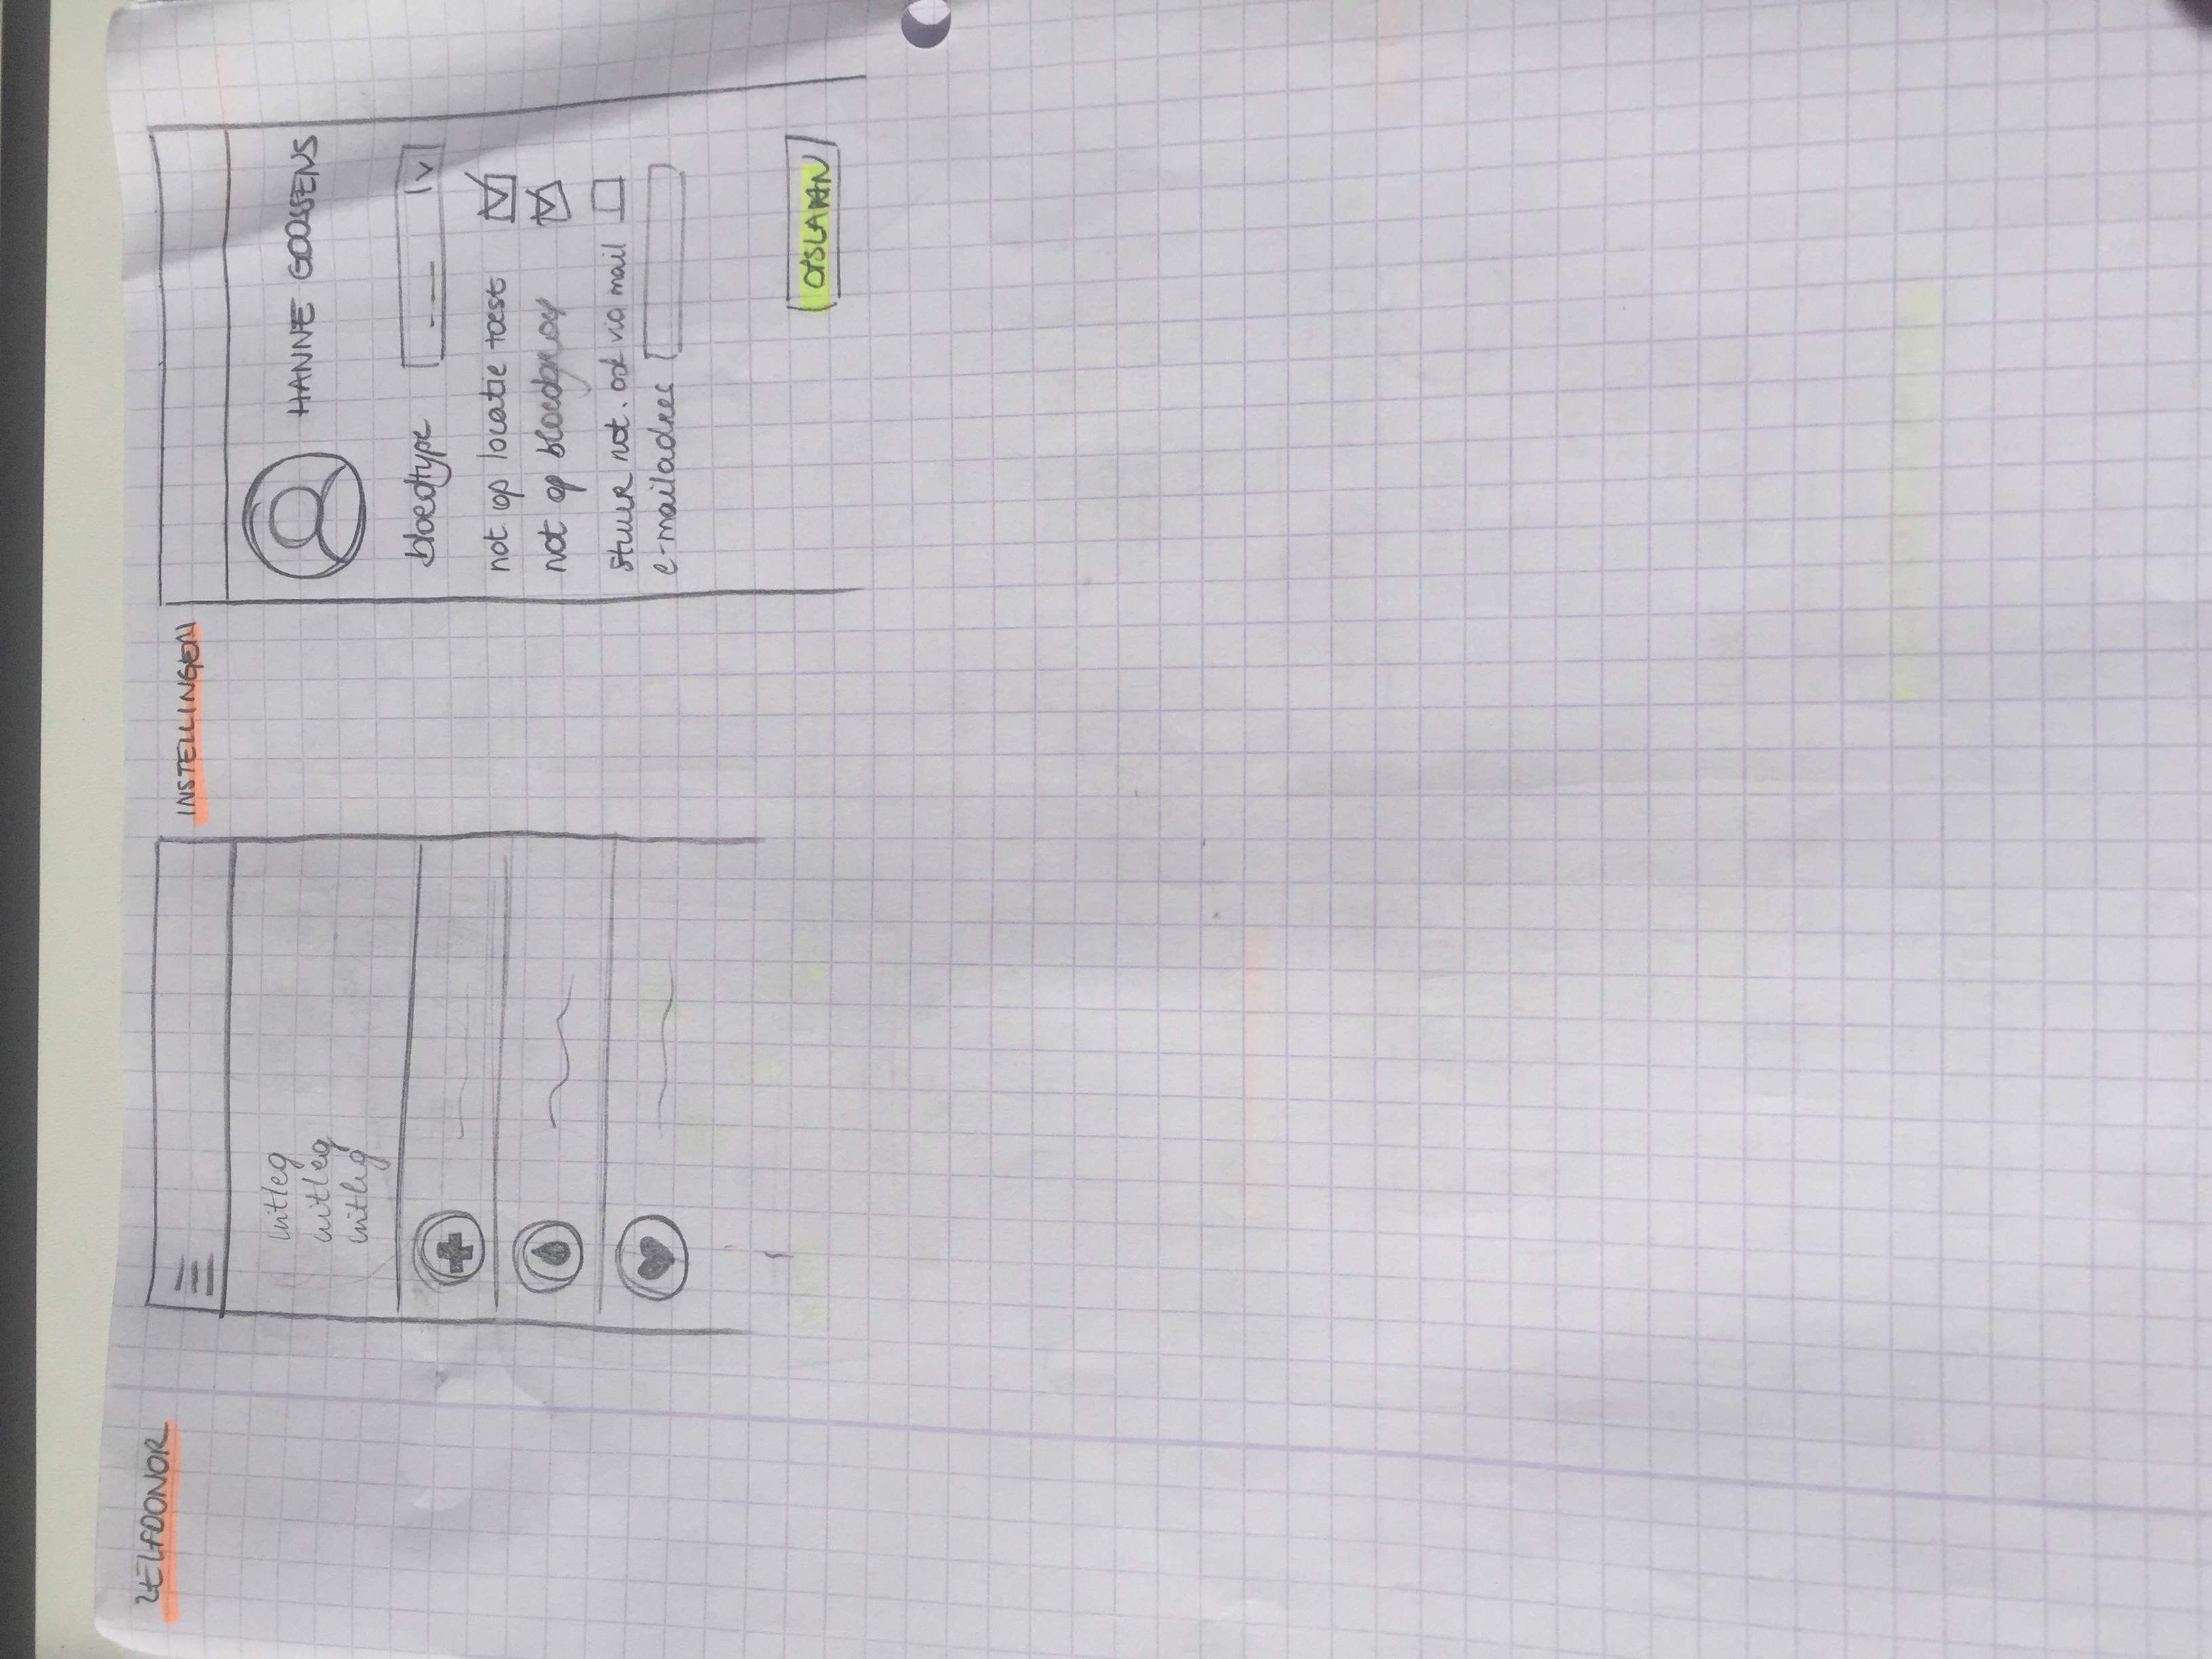 ZELFDONOR
uitleg
uitleg
uitleg
INSTELLINGEN
HANNE GOOSSENS
bloedtype
not op locatie toest
not op bloedgroep
stuur not. ook via mail
e-mailadres
OPSLAAN